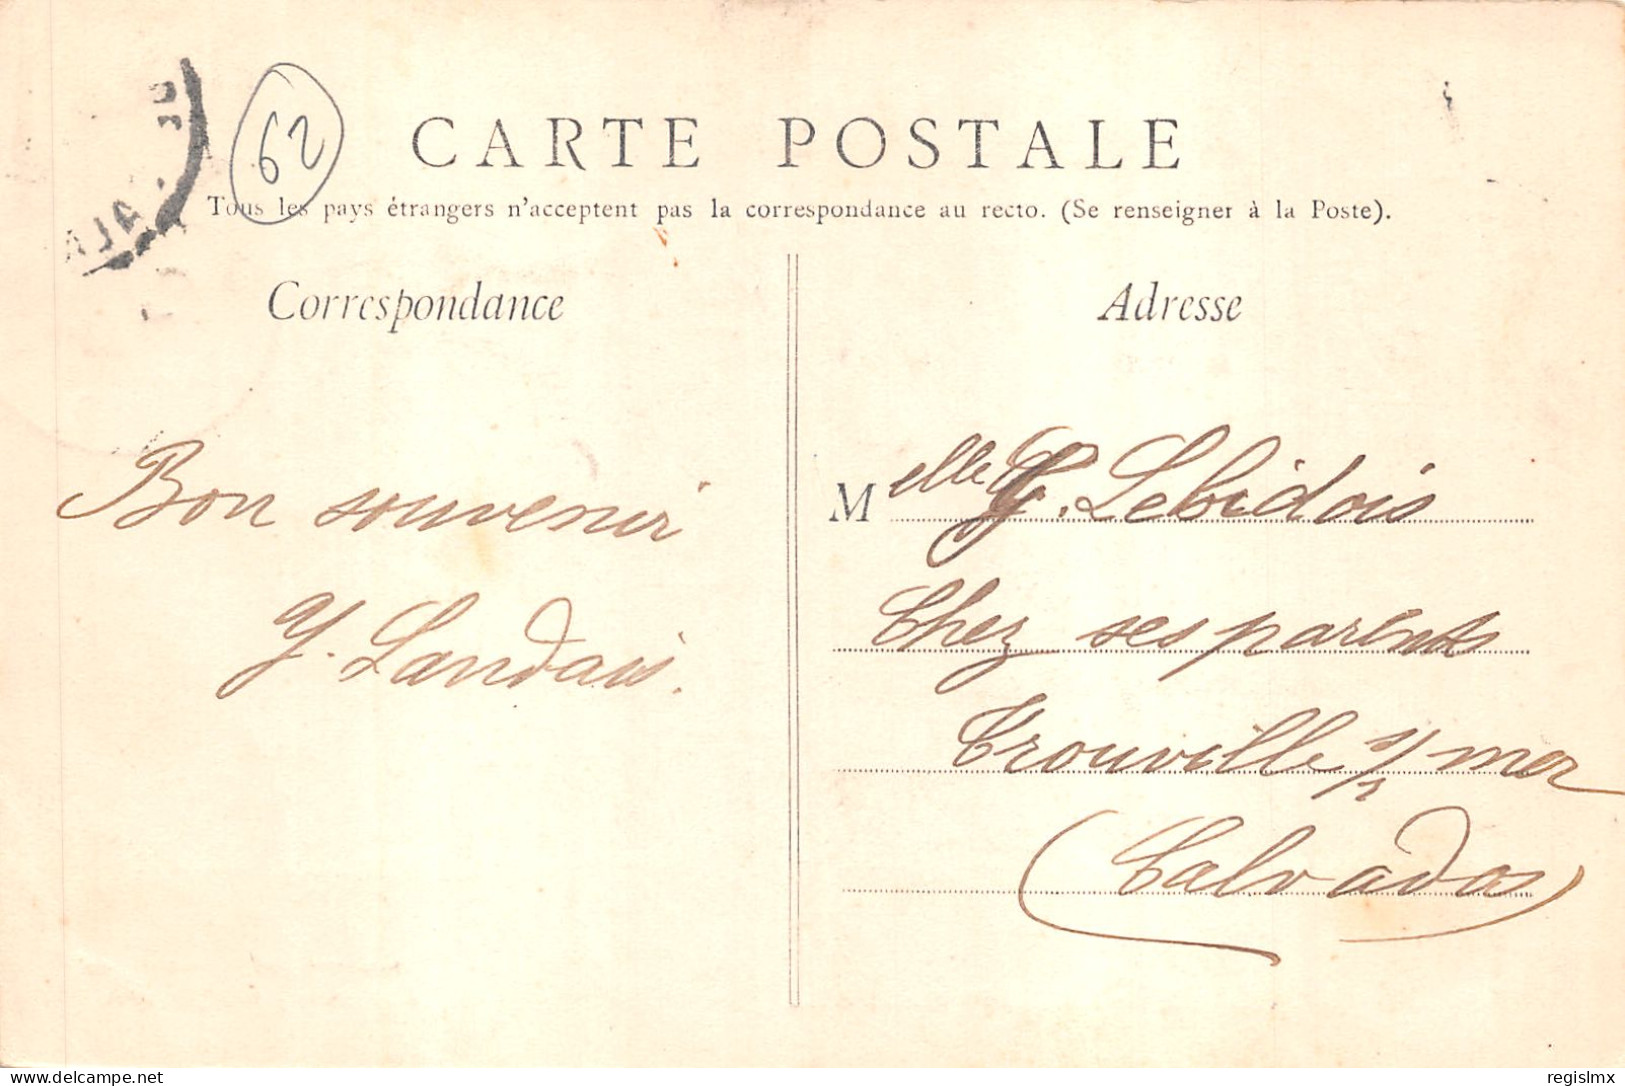 62
CARTE POSTALE
Tous les pays étrangers n'acceptent pas la correspondance au recto. (Se renseigner à la Poste).
Correspondance
Bon souvenir
Y. Landais.
Adresse
Melle G. Lebidois
Chez ses parents
Trouville s/mer
(Calvados)
www.delcampe.net
regislmx